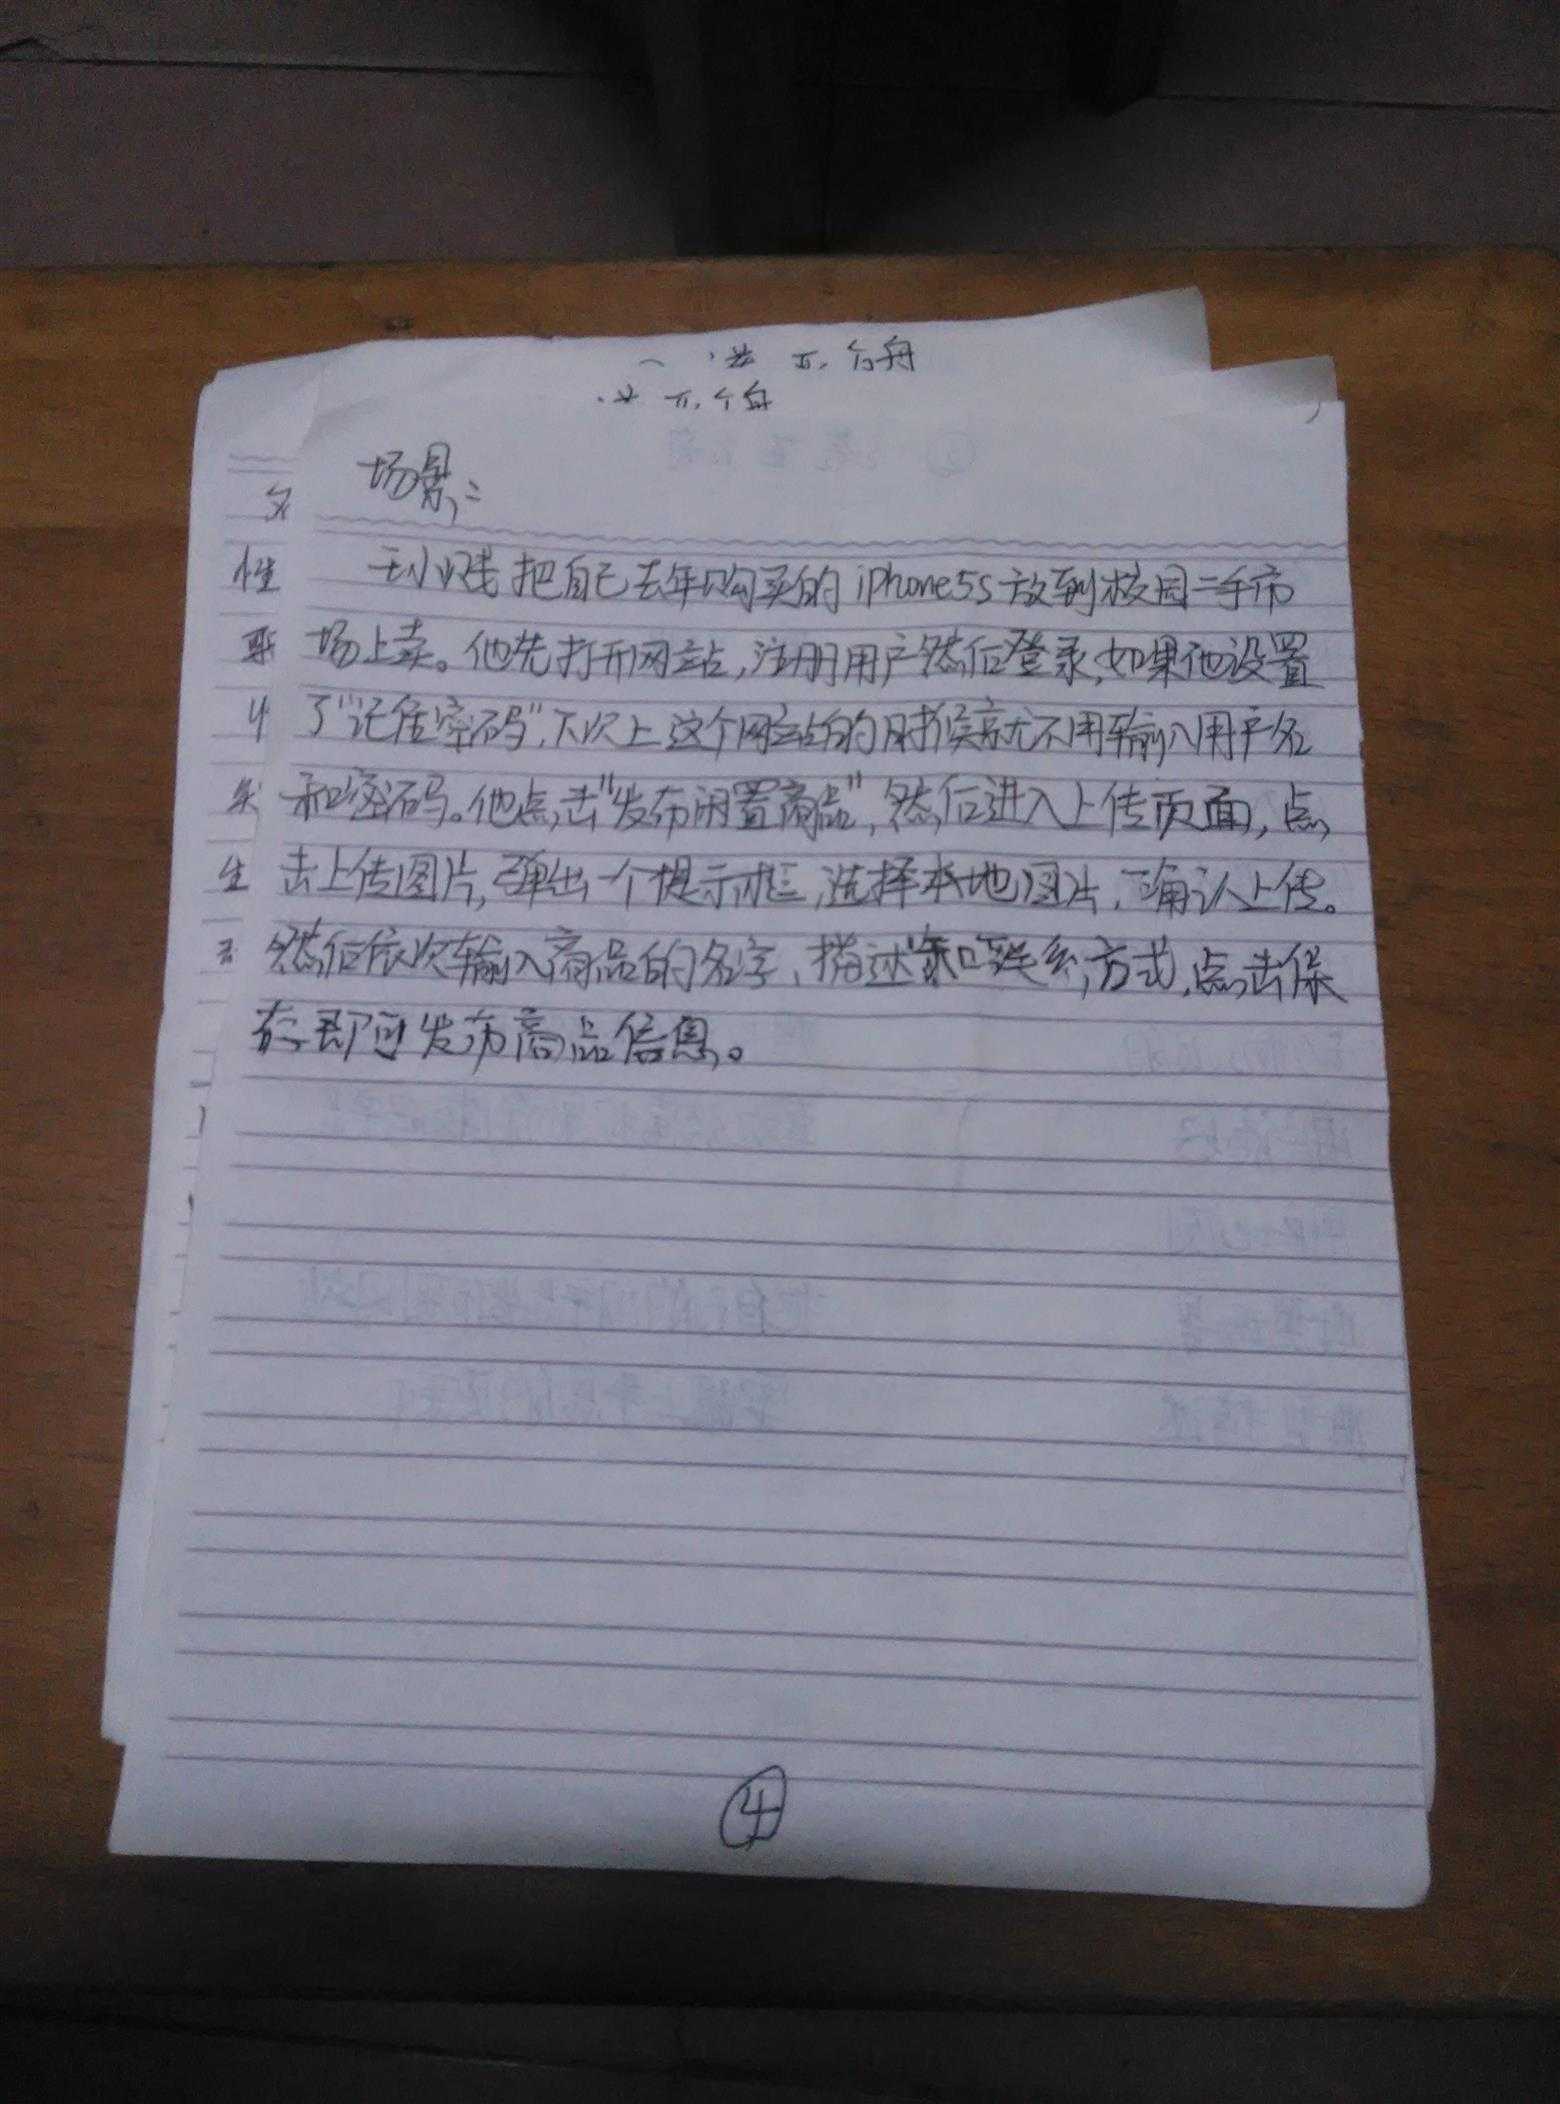 场景二
王小贱把自己去年购买的iphone5s放到校园二手市
场上卖。他先打开网站,注册用户然后登录,如果他设置
了"记住密码",下次上这个网站的时候就不用输入用户名
和密码。他点击"发布闲置商品",然后进入上传页面,点
击上传图片,弹出一个提示框,选择本地图片,确认上传。
然后依次输入商品的名字、描述和联系方式,点击保
存即可发布商品信息。
性
生
④